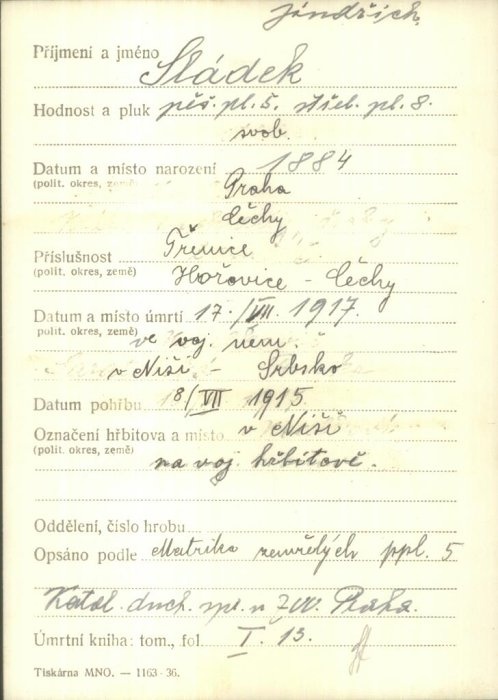 Jindřich.
Příjmení a jméno Sládek
Hodnost a pluk pěš. pl. 5. střel. pl. 8.
svob.
Datum a místo narození 1884
(polit. okres, země) Praha
Čechy
Příslušnost Třenice
(polit. okres, země) Hořovice - Čechy
Datum a místo úmrtí 17./VII. 1917.
(polit. okres, země) ve voj. nem.
v Niši - Srbsko
Datum pohřbu 18/VII 1915
Označení hřbitova a místo v Niši
(polit. okres, země)
na voj. hřbitově.
Oddělení, číslo hrobu
Opsáno podle Matrika zemřelých ppl. 5
Katol. duch. spr. u ZVV. Praha.
Úmrtní kniha: tom., fol. I. 13.
Tiskárna MNO. — 1163-36.